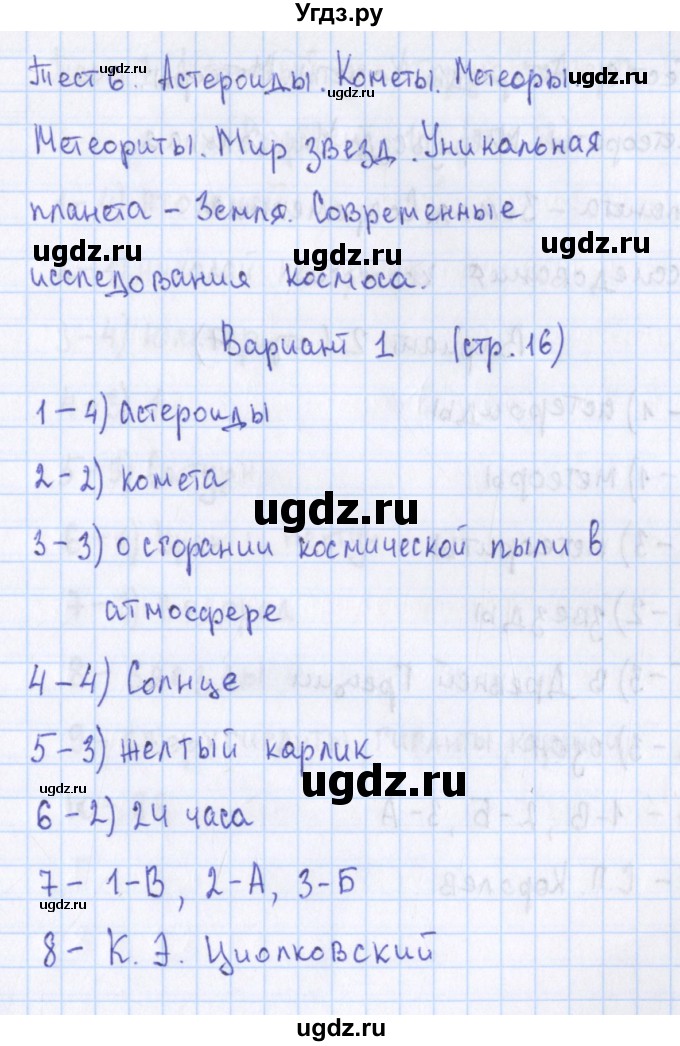 Угдз.ру
Тест 6. Астероиды. Кометы. Метеоры.
Метеориты. Мир звезд. Уникальная
планета – Земля. Современные
исследования космоса.
Вариант 1 (стр. 16)
1 – 4) астероиды
2 – 2) комета
3 – 3) о сгорании космической пыли в
атмосфере
4 – 4) Солнце
5 – 3) желтый карлик
6 – 2) 24 часа
7 – 1-В, 2-А, 3-Б
8 – К. Э. Циолковский
ugdz.ru
ugdz.ru
ugdz.ru
ugdz.ru
ugdz.ru
ugdz.ru
ugdz.ru
ugdz.ru
ugdz.ru
ugdz.ru
ugdz.ru